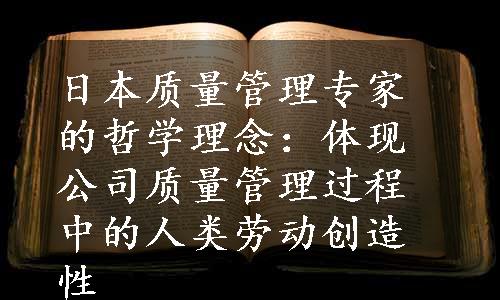 日本质量管理专家
的哲学理念：体现
公司质量管理过程
中的人类劳动创造
性